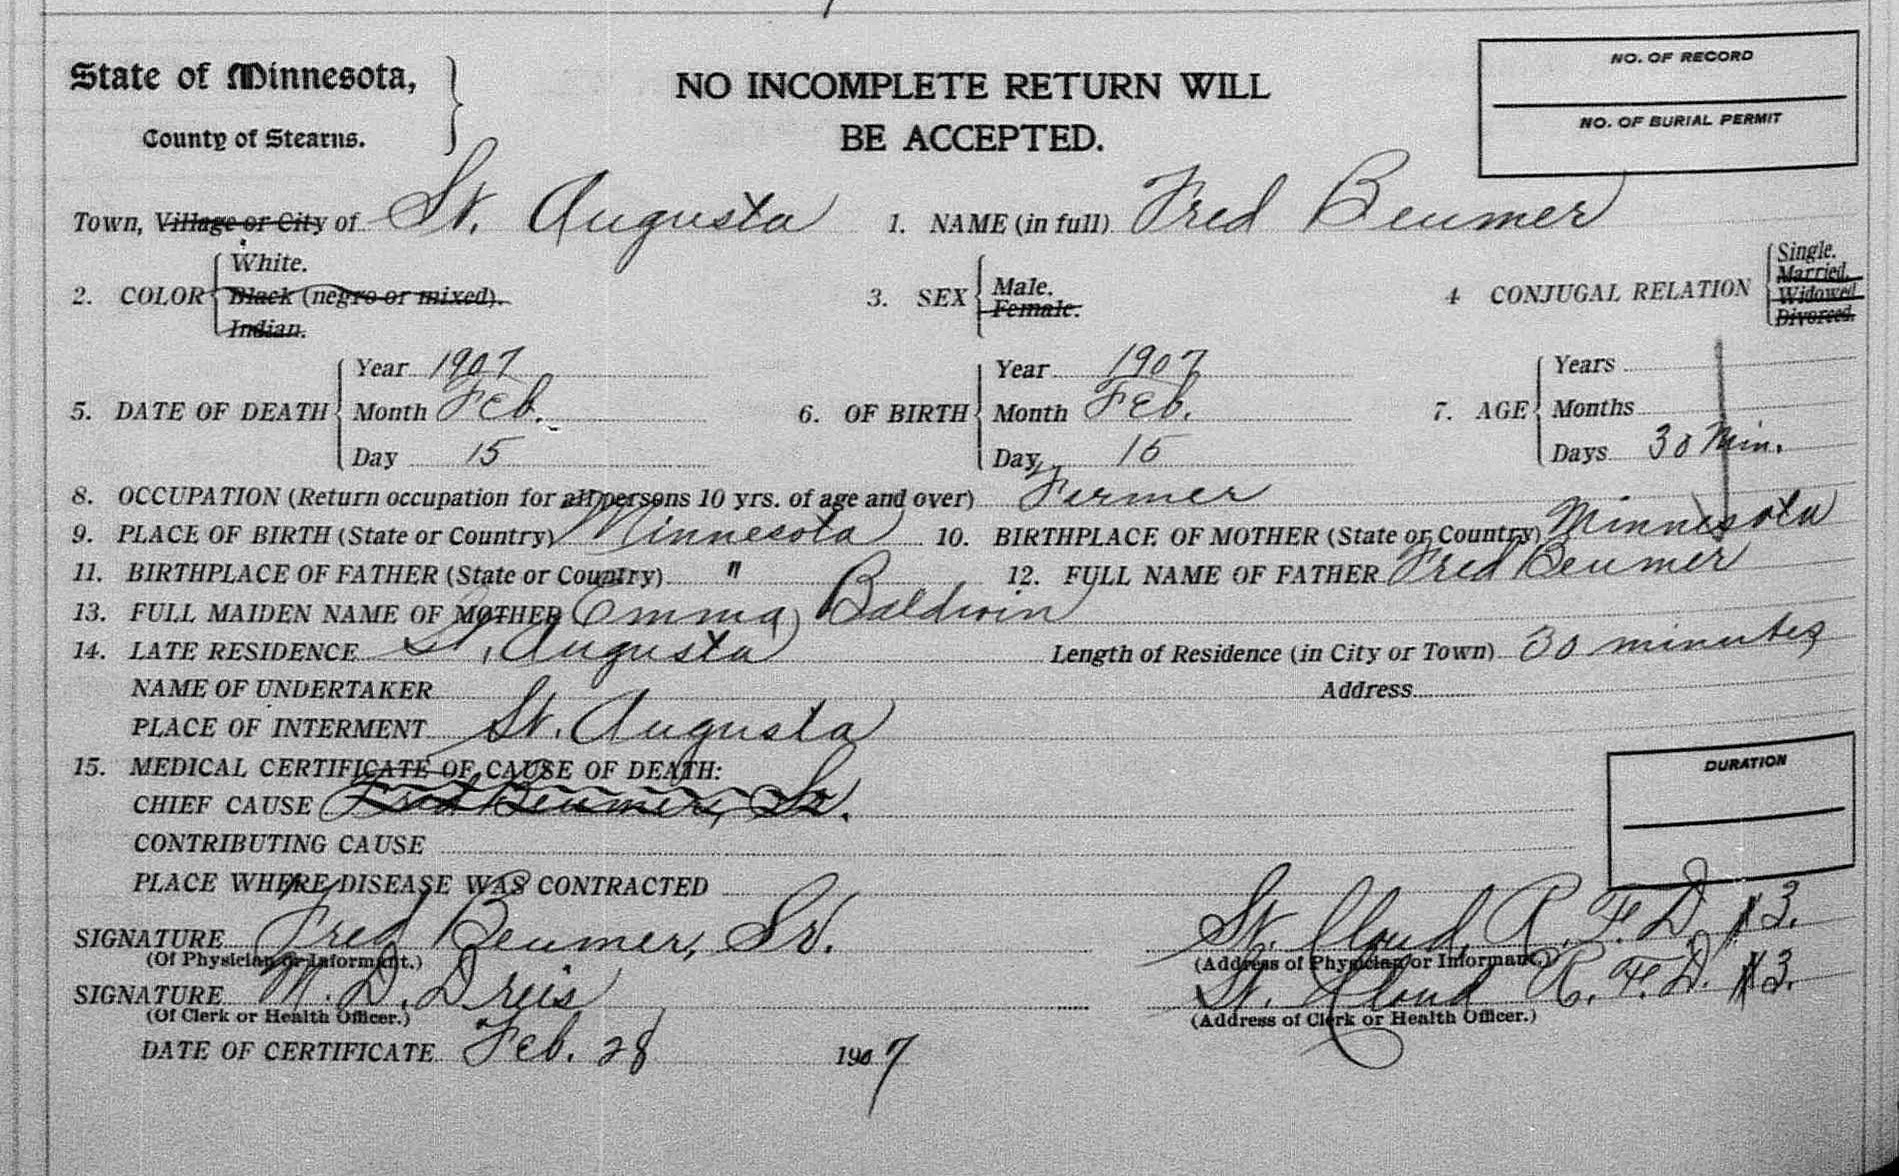 State of Minnesota,
County of Stearns.
NO INCOMPLETE RETURN WILL
BE ACCEPTED.
NO. OF RECORD
NO. OF BURIAL PERMIT
Town, Village or City of St. Augusta 1. NAME (in full) Fred Beumer
2. COLOR White. Black (negro or mixed). Indian. 3. SEX Male. Female. 4 CONJUGAL RELATION Single. Married. Widowed Divorced.
5. DATE OF DEATH Year 1907 Month Feb. Day 15 6. OF BIRTH Year 1907 Month Feb. Day 15 7. AGE Years Months Days 30 Min.
8. OCCUPATION (Return occupation for all persons 10 yrs. of age and over) Fermer
9. PLACE OF BIRTH (State or Country) Minnesota 10. BIRTHPLACE OF MOTHER (State or Country) Minnesota
11. BIRTHPLACE OF FATHER (State or Country) " 12. FULL NAME OF FATHER Fred Beumer
13. FULL MAIDEN NAME OF MOTHER Emma Baldwin
14. LATE RESIDENCE St. Augusta Length of Residence (in City or Town) 30 minutes
NAME OF UNDERTAKER Address
PLACE OF INTERMENT St. Augusta
15. MEDICAL CERTIFICATE OF CAUSE OF DEATH:
CHIEF CAUSE Fred Beumer, Sr.
CONTRIBUTING CAUSE
DURATION
PLACE WHERE DISEASE WAS CONTRACTED
SIGNATURE Fred Beumer, Sr. St. Cloud, R. F. D. #3.
(Of Physician or Informant.) (Address of Physician or Informant.)
SIGNATURE M. D. Dreis St. Cloud R. F. D. #3.
(Of Clerk or Health Officer.) (Address of Clerk or Health Officer.)
DATE OF CERTIFICATE Feb. 28 1907